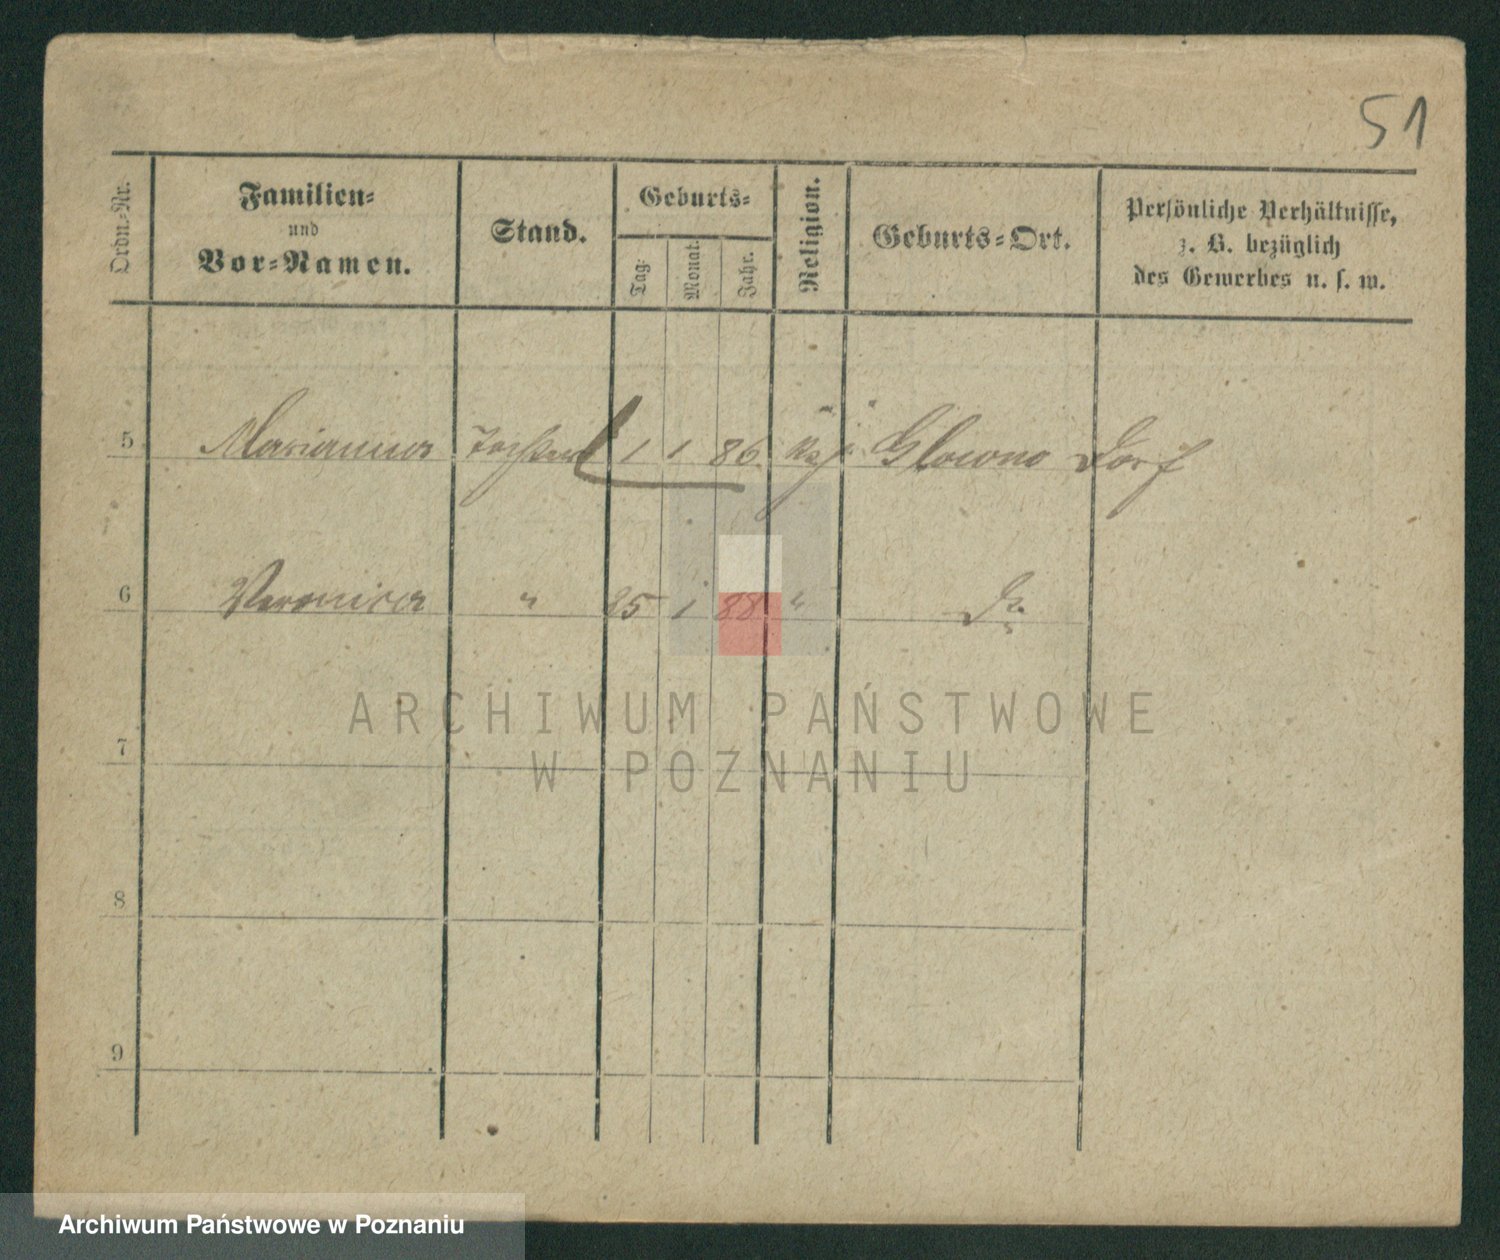 51
Ordn.-Nr.
Familien-
und
Vor-Namen.
Stand.
Geburts-
Tag.
Monat.
Jahr.
Religion.
Geburts-Ort.
Persönliche Verhältnisse,
z. B. bezüglich
des Gewerbes u. s. w.
5 Marianna Tochter 1 1 86 Kath Glowno Dorf
6 Veronica " 25 1 88 " Do
7
8
9
ARCHIWUM PAŃSTWOWE
W POZNANIU
Archiwum Państwowe w Poznaniu